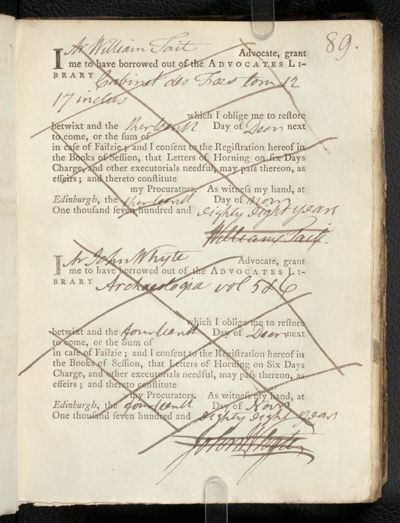 89.
I Mr William Tait Advocate, grant
me to have borrowed out of the ADVOCATES LI-
BRARY Cabinet des Fees tom 12
17 inclus
which I oblige me to restore
betwixt and the thirteenth Day of Decr next
to come, or the sum of
in case of Failzie; and I consent to the Registration hereof in
the Books of Session, that Letters of Horning on six Days
Charge, and other executorials needful, may pass thereon, as
effeirs; and thereto constitute
my Procurators. As witness my hand, at
Edinburgh, the thirteenth Day of Novr
One thousand seven hundred and eighty eight years
William Tait.
I Mr John Whyte Advocate, grant
me to have borrowed out of the ADVOCATES LI-
BRARY Archaeologia vol 5 & 6
which I oblige me to restore
betwixt and the fourteenth Day of Decr next
to come, or the Sum of
in case of Failzie; and I consent to the Registration hereof in
the Books of Session, that Letters of Horning on Six Days
Charge, and other executorials needful, may pass thereon, as
effeirs; and thereto constitute
my Procurators. As witness my hand, at
Edinburgh, the fourteenth Day of Novr
One thousand seven hundred and eighty eight years
John Whyte